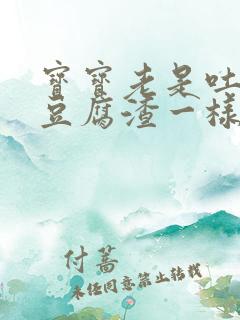 寶寶老是吐
豆腐渣一樣
付蓄
未经同意禁止转载